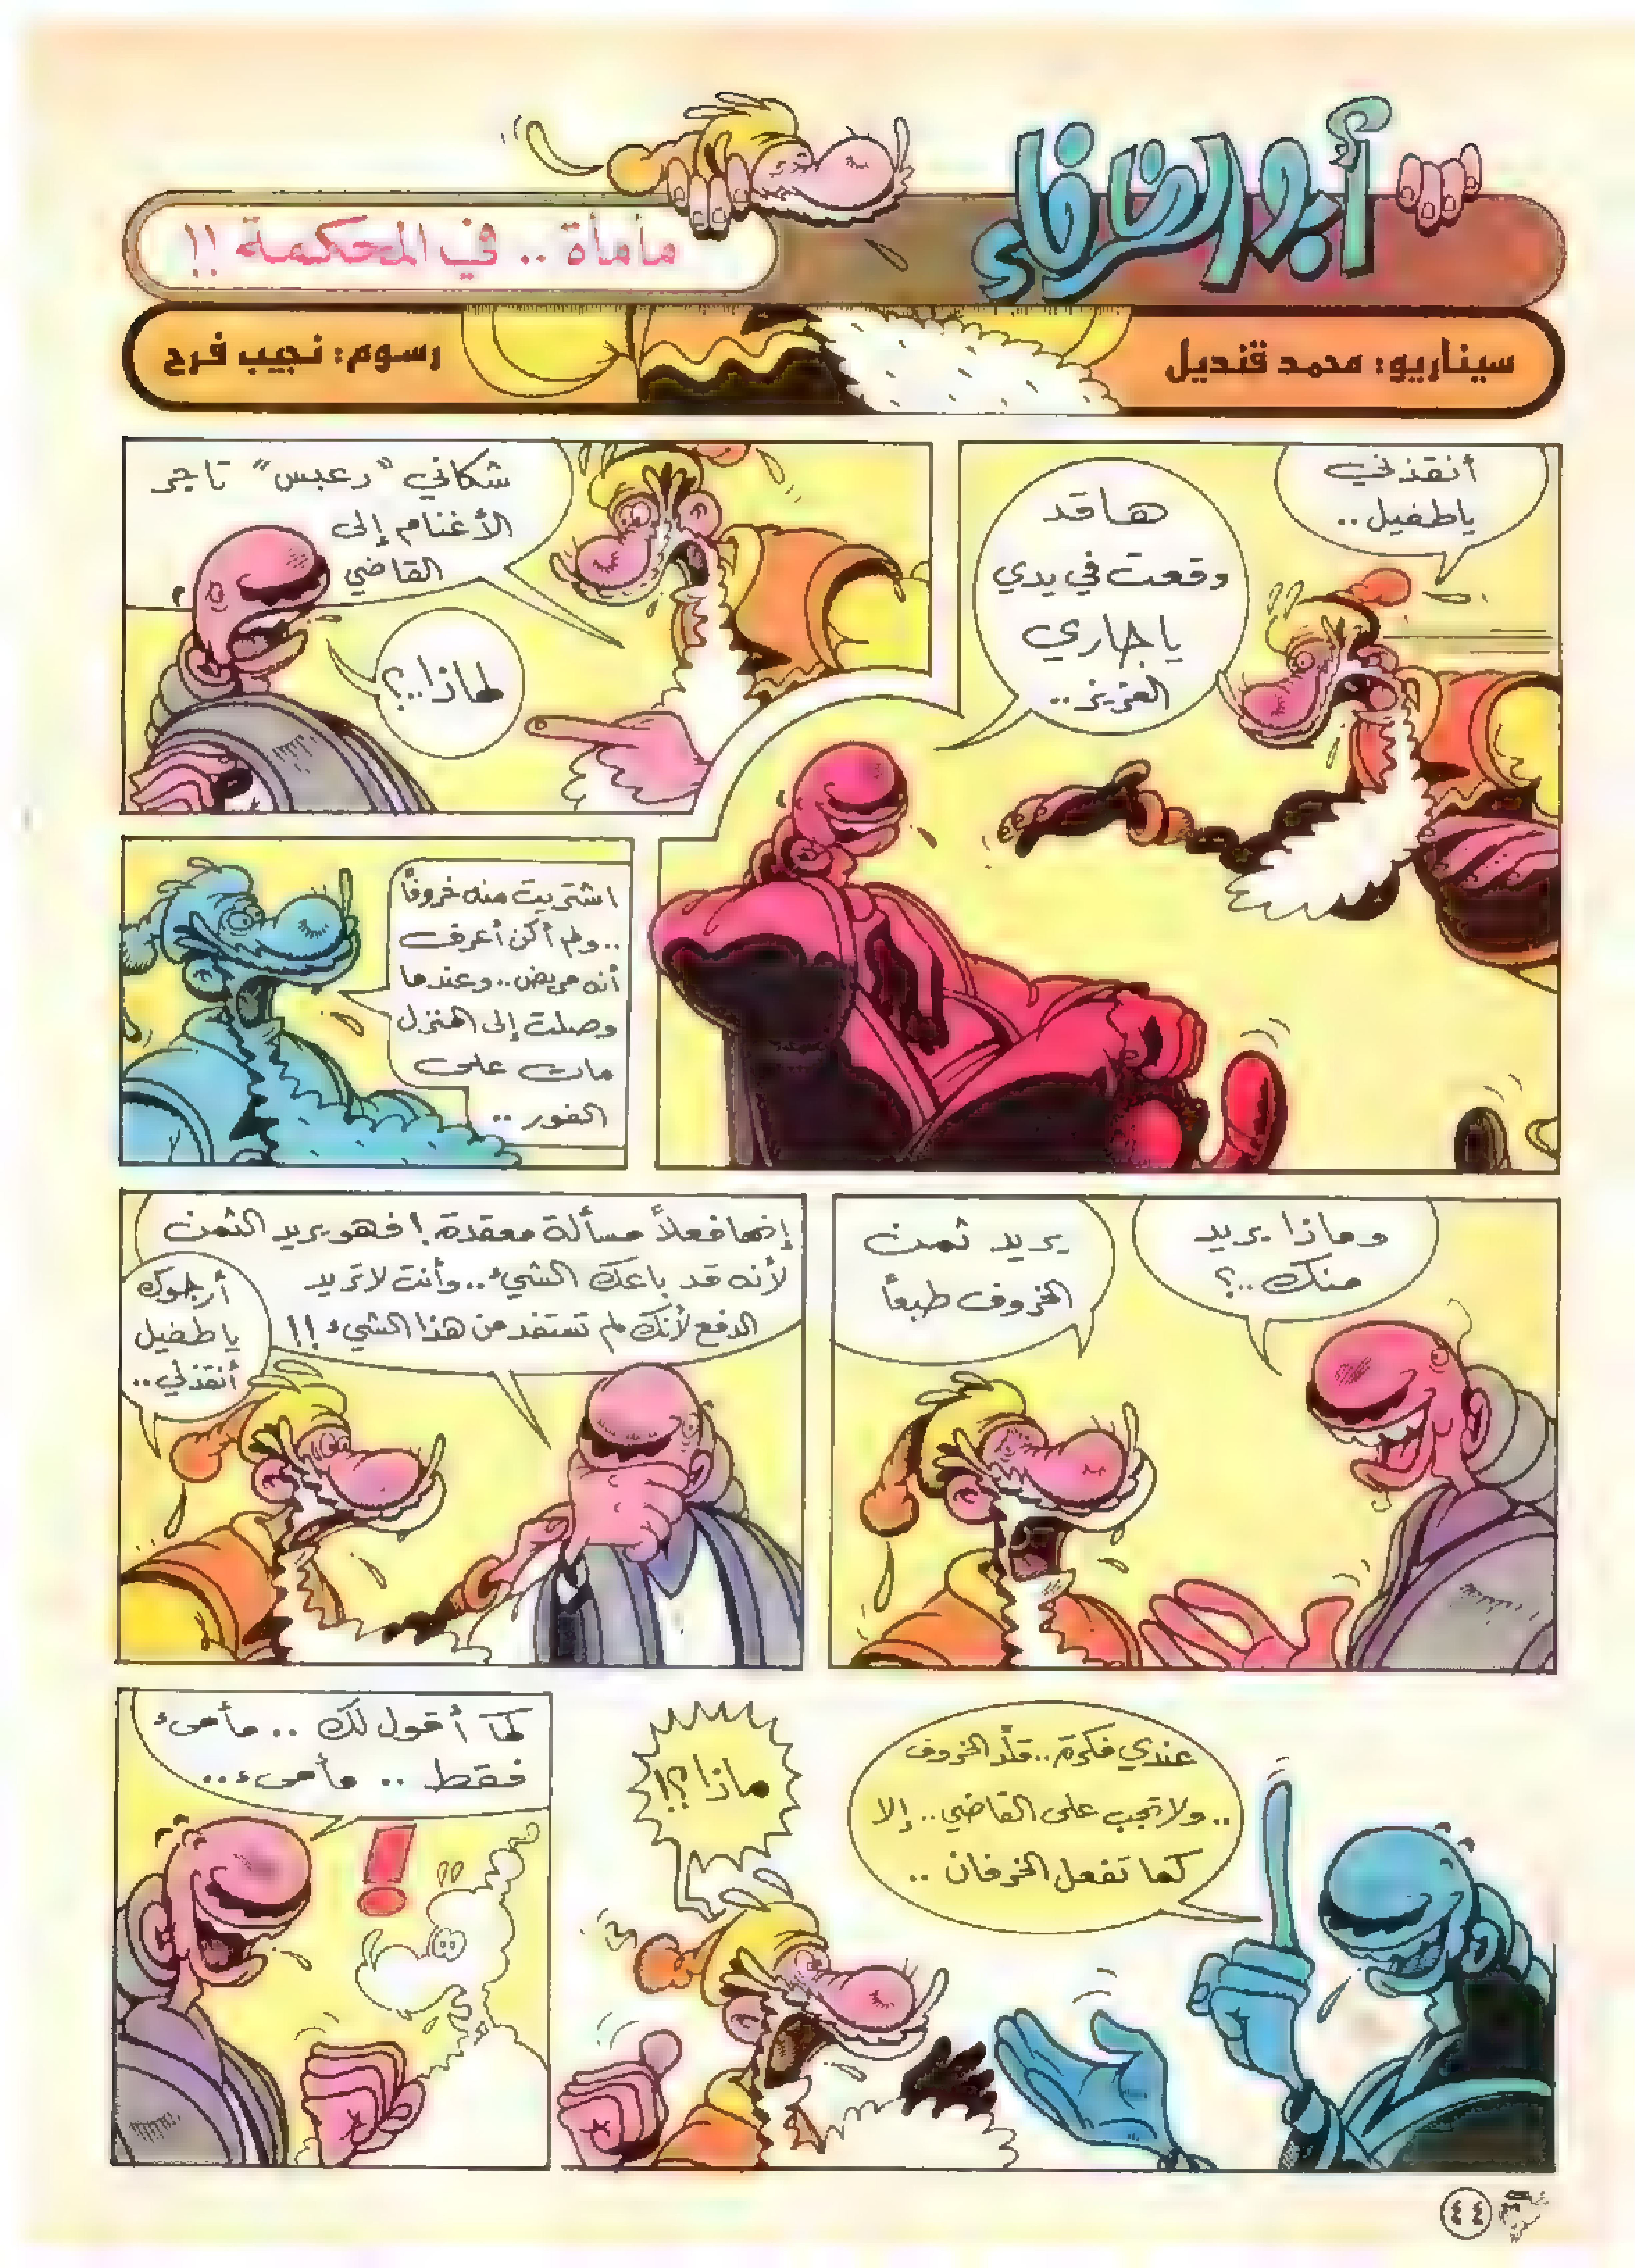 أبو الظرفاء
مأمأة .. في المحكمة !!
سيناريو: محمد قنديل
رسوم: نجيب فرح
أنقذني
ياطفيل..
هاقد
وقعت في يدي
ياجاري
العزيز..
شكاني "دعبس" تاجر
الأغنام إلى
القاضي
لماذا..؟
اشتريت منه خروفاً
..ولم أكن أعرف
أنه مريض..وعندما
وصلت إلى المنزل
مات على
الفور..
وماذا يريد
منك..؟
يريد ثمن
الخروف طبعاً
إنها فعلاً مسألة معقدة! فهو يريد الثمن
لأنه قد باعك الشيء..وأنت لا تريد
الدفع لأنك لم تستفد من هذا الشيء!!
أرجوك
ياطفيل
أنقذني..
عندي فكرة..قلّد الخروف
..ولا تجب على القاضي..إلا
كما تفعل الخرفان..
ماذا؟!
كما أقول لك .. مأمىء
فقط .. مأمىء..
٤٤